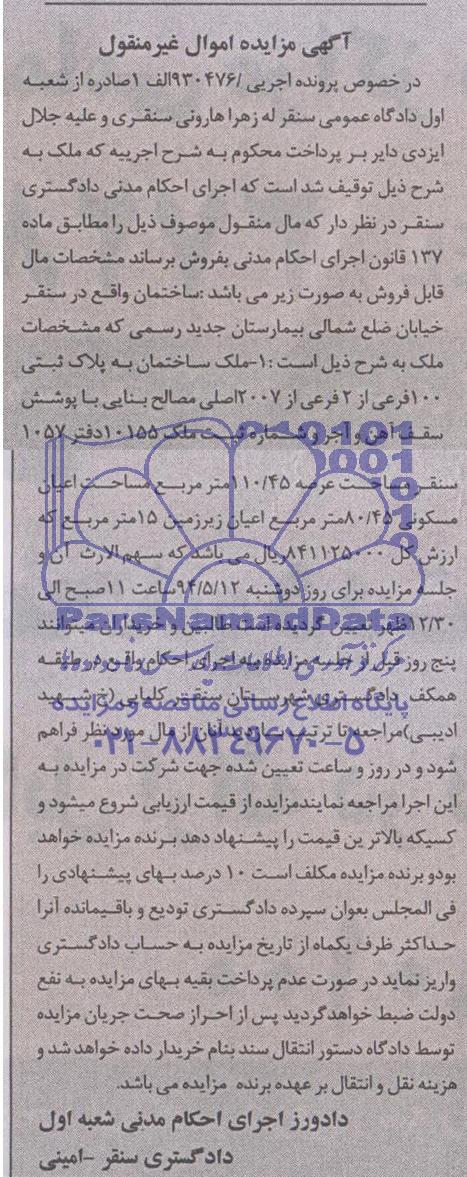 آگهی مزایده اموال غیرمنقول
در خصوص پرونده اجریی /۹۳۰۴۷۶الف ۱صادره از شعبه
اول دادگاه عمومی سنقر له زهرا هارونی سنقری و علیه جلال
ایزدی دایر بر پرداخت محکوم به شرح اجرییه که ملک به
شرح ذیل توقیف شد است که اجرای احکام مدنی دادگستری
سنقر در نظر دار که مال منقول موصوف ذیل را مطابق ماده
۱۳۷ قانون اجرای احکام مدنی بفروش برساند مشخصات مال
قابل فروش به صورت زیر می باشد :ساختمان واقع در سنقر
خیابان ضلع شمالی بیمارستان جدید رسمی که مشخصات
ملک به شرح ذیل است :۱-ملک ساختمان به پلاک ثبتی
۱۰۰فرعی از ۲ فرعی از ۲۰۰۷اصلی مصالح بنایی با پوشش
سقف آهن و آجر و شماره ثبت ملک ۱۰۱۵۵دفتر ۱۰۵۷
سنقر مساحت عرصه ۱۱۰/۴۵متر مربع مساحت اعیان
مسکونی ۸۰/۴۵متر مربع اعیان زیرزمین ۱۵متر مربع که
ارزش کل ۸۴۱۱۲۵۰۰۰ریال می باشد که سهم الارث آن و
جلسه مزایده برای روز دوشنبه ۹۴/۵/۱۲ساعت ۱۱صبح الی
۱۲/۳۰ظهر تعیین گردیده است طالبین و خریداران میتوانند
پنج روز قبل از جلسه مزایده به اجرای احکام واقع در طبقه
همکف دادگستری شهرستان سنقر کلیایی (خ شهید
ادیبی)مراجعه تا ترتیب بازدید آنان از مال مورد نظر فراهم
شود و در روز و ساعت تعیین شده جهت شرکت در مزایده به
این اجرا مراجعه نمایندمزایده از قیمت ارزیابی شروع میشود و
کسیکه بالاتر ین قیمت را پیشنهاد دهد برنده مزایده خواهد
بودو برنده مزایده مکلف است ۱۰ درصد بهای پیشنهادی را
فی المجلس بعوان سپرده دادگستری تودیع و باقیمانده آنرا
حداکثر ظرف یکماه از تاریخ مزایده به حساب دادگستری
واریز نماید در صورت عدم پرداخت بقیه بهای مزایده به نفع
دولت ضبط خواهدگردید پس از احراز صحت جریان مزایده
توسط دادگاه دستور انتقال سند بنام خریدار داده خواهد شد و
هزینه نقل و انتقال بر عهده برنده مزایده می باشد.
دادورز اجرای احکام مدنی شعبه اول
دادگستری سنقر -امینی
ParsNamadData
پایگاه اطلاع رسانی مناقصه و مزایده
۰۲۱-۸۸۳۴۹۶۷۰-۵